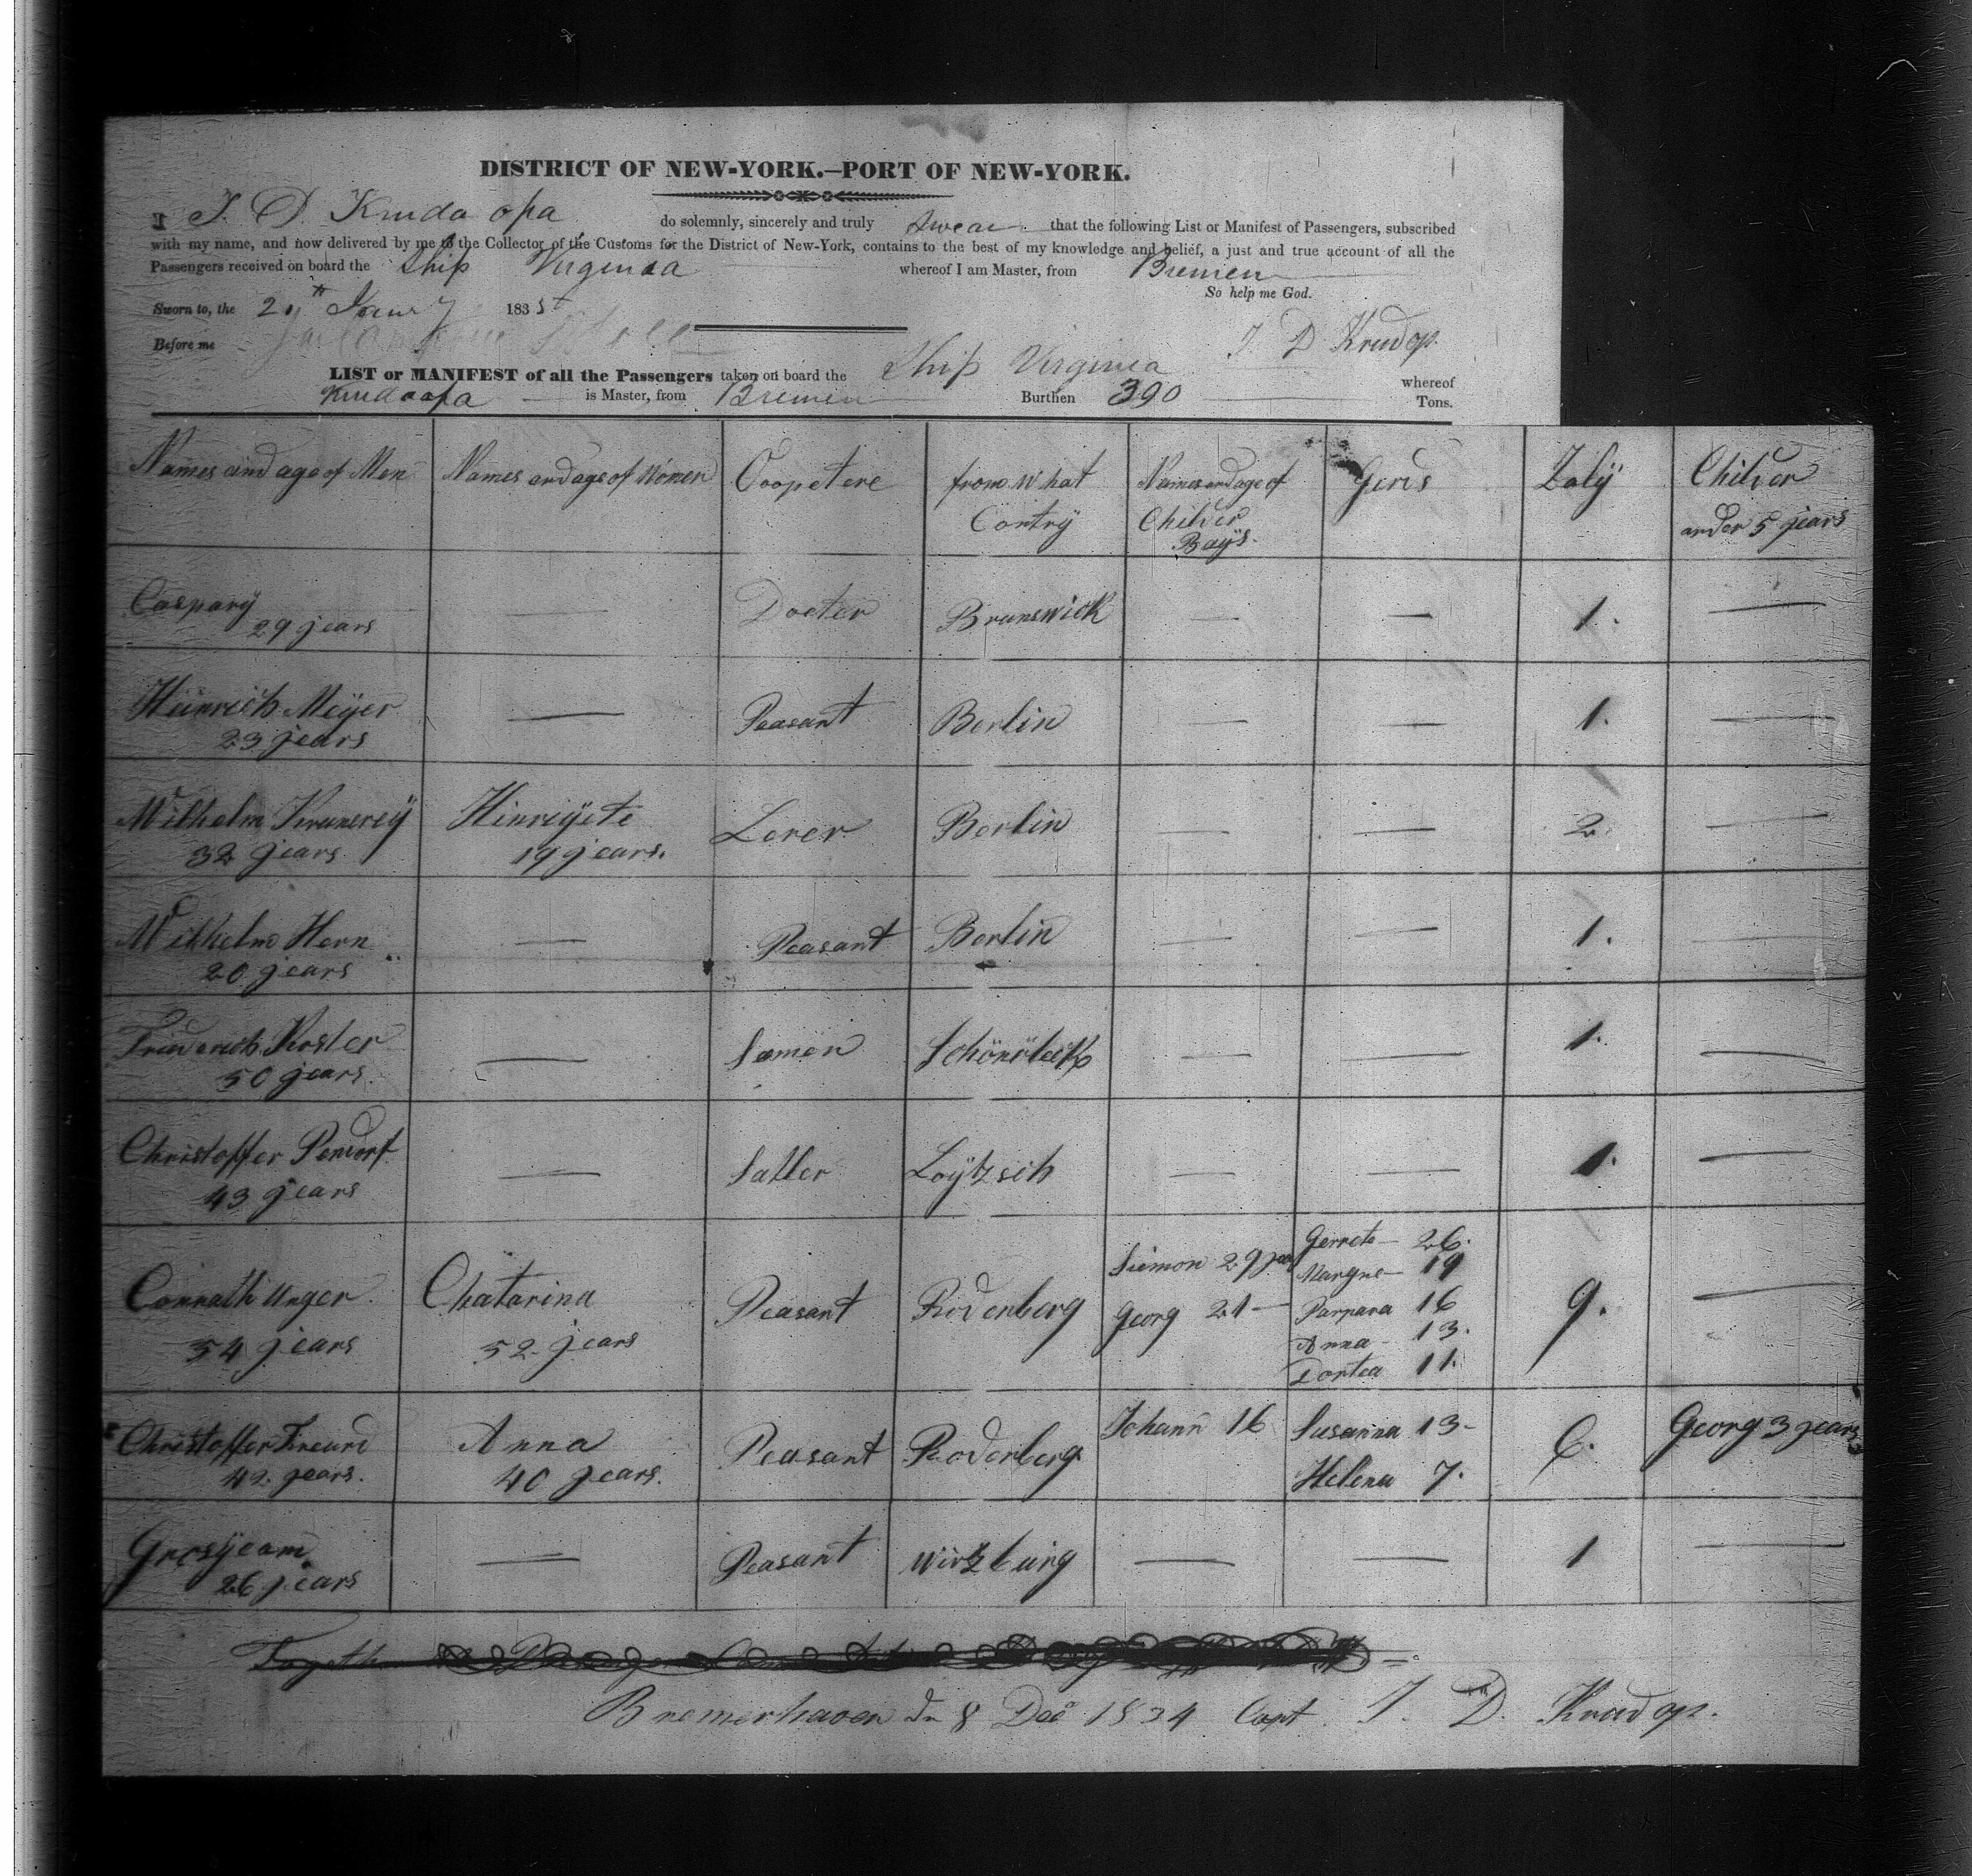 DISTRICT OF NEW-YORK.—PORT OF NEW-YORK.
I J. D. Kruda opa do solemnly, sincerely and truly swear that the following List or Manifest of Passengers, subscribed
with my name, and now delivered by me to the Collector of the Customs for the District of New-York, contains to the best of my knowledge and belief, a just and true account of all the
Passengers received on board the Ship Virginia whereof I am Master, from Bremen
So help me God.
Sworn to, the 183
Before me J. D. Krudop.
LIST or MANIFEST of all the Passengers taken on board the Ship Virginia whereof
Krudoopa is Master, from Bremen Burthen 390 Tons.
Names and age of Men Names and age of Women Ooopetere from what Contrÿ Names and age of Childer Boÿs. Gerls Zalÿ Childer under 5 jears
Casparÿ 29 jears — Docter Brunswick — — 1. —
Heinrich Meÿer 23 jears — Peasant Berlin — — 1. —
Wilhelm 32 jears Hinriÿete 19 jears. Lerer Berlin — — 2. —
Wilhelm Horn 20 jears — Peasant Berlin — — 1. —
Friederich Koster 50 jears. — Semen — — 1. —
Christoffer 43 jears — Satler Loÿtzsch — — 1. —
Conrath Unger 54 jears Chatarina 52 jears Peasant Rodenberg
Siemon 29 jears
Georg 21 —
Gerrete — 26.
Margre — 19
Parpara 16
Anna — 13.
Dortea 11.
9. —
Christoffer 42 jears. Anna 40 jears. Peasant Rodenberg Johann 16
Susanna 13 —
Helena 7.
6. Georg 3 jears
Grosjeam 26 jears — Peasant Wirtzburg — — 1 —
Bremerhaven dn 8 Dec 1834 Capt. J. D. Krudop.